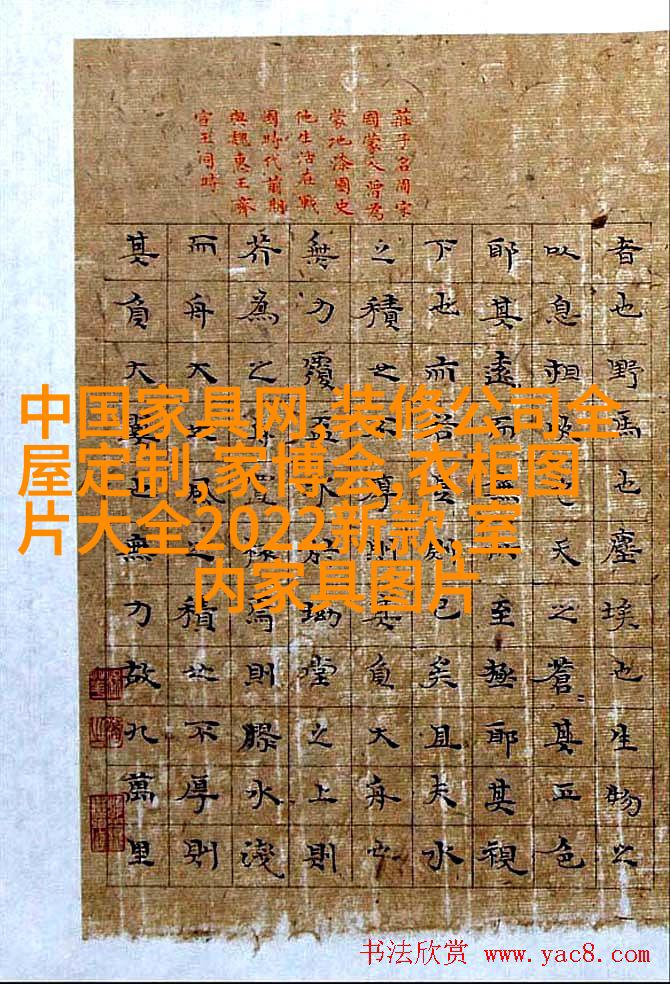 莊子名周宋
國蒙人曾為
蒙地漆園史
他生活在戰
國時代前期
與魏惠王齊
宣王同時
者也野馬也塵埃也生物之
以息相吹也天之蒼〻其正色
耶其遠而無所至極耶其視
下也而若是則已矣且夫水
之積也不厚則其負大舟也
無力覆盃水於坳堂之上則
芥為之舟置杯焉則膠水淺
而舟大也風之積也不厚則
其負大翼也無力故九萬里
中国家具网,装修公司全
屋定制,家博会,衣柜图
片大全2022新款,室
内家具图片
书法欣赏 www.yac8.com